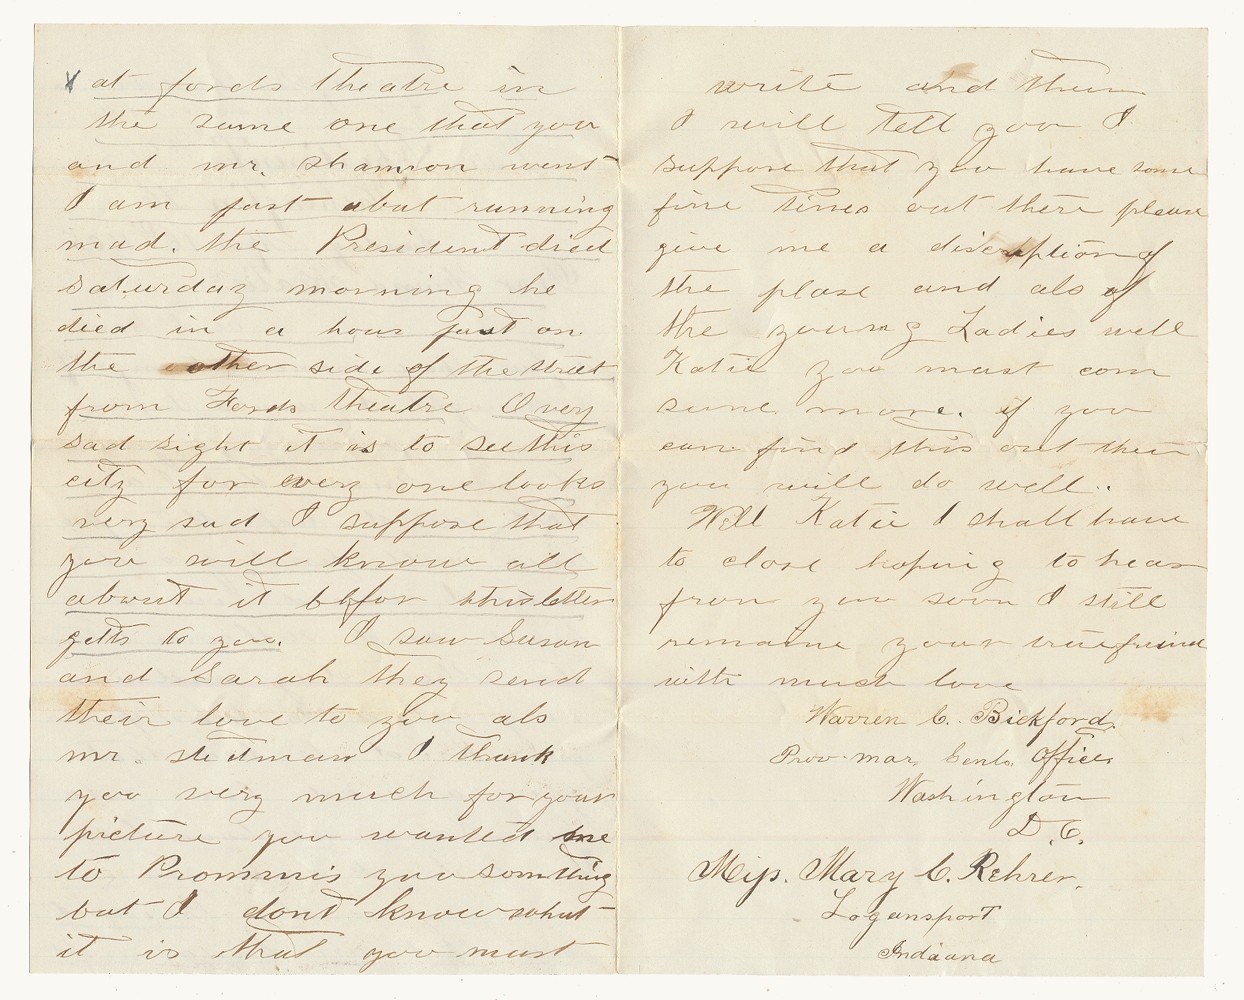 at fords theatre in
the same one that you
and mr. shannon went
I am just abut running
mad. the President died
saturday morning he
died in a hous just on
the other side of the street
from Fords theatre O very
sad sight it is to see this
city for every one looks
very sad I suppose that
you will know all
about it bffor this letter
getts to you. I saw Susan
and Sarah they send
their love to you als
mr. stetman I thank
you very much for your
picture you wanted me
to Prommis you somthing
but I dont know what
it is that you must
write and then
I will tell you I
suppose that you have some
fine times out there please
give me a discription of
the plase and als of
the young Ladies well
Katie you must com
sune more. if you
can find this out then
you will do well..
Well Katie I shall have
to close hoping to hear
from you soon I still
remaine your true friend
with much love
Warren C. Bickford.
Prov. mar, Genls, Office
Washington
D. C.
Miss. Mary C. Rehrer.
Logansport
Indiana